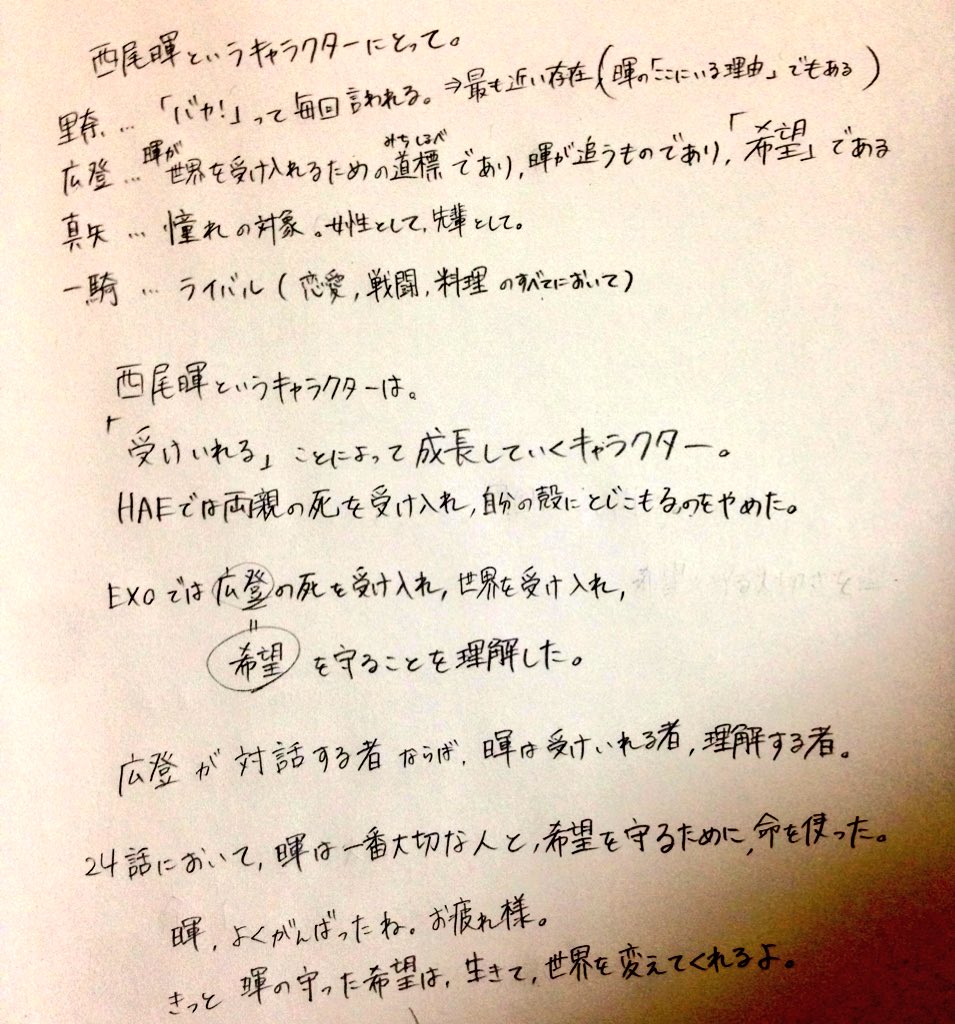 西尾暉というキャラクターにとって。
里奈…「バカ!」って毎回言われる。⇒最も近い存在(暉の「ここにいる理由」でもある)
広登…暉が世界を受け入れるための道標(みちしるべ)であり,暉が追うものであり,「希望」である
真矢…憧れの対象。女性として,先輩として。
一騎…ライバル(恋愛,戦闘,料理のすべてにおいて)
西尾暉というキャラクターは。
「受けいれる」ことによって成長していくキャラクター。
HAEでは両親の死を受け入れ,自分の殻にとじこもるのをやめた。
EXOでは広登の死を受け入れ,世界を受け入れ,
=
希望を守ることを理解した。
広登が対話する者ならば,暉は受けいれる者,理解する者。
24話において,暉は一番大切な人と,希望を守るために,命を使った。
暉,よくがんばったね。お疲れ様。
きっと暉の守った希望は,生きて,世界を変えてくれるよ。